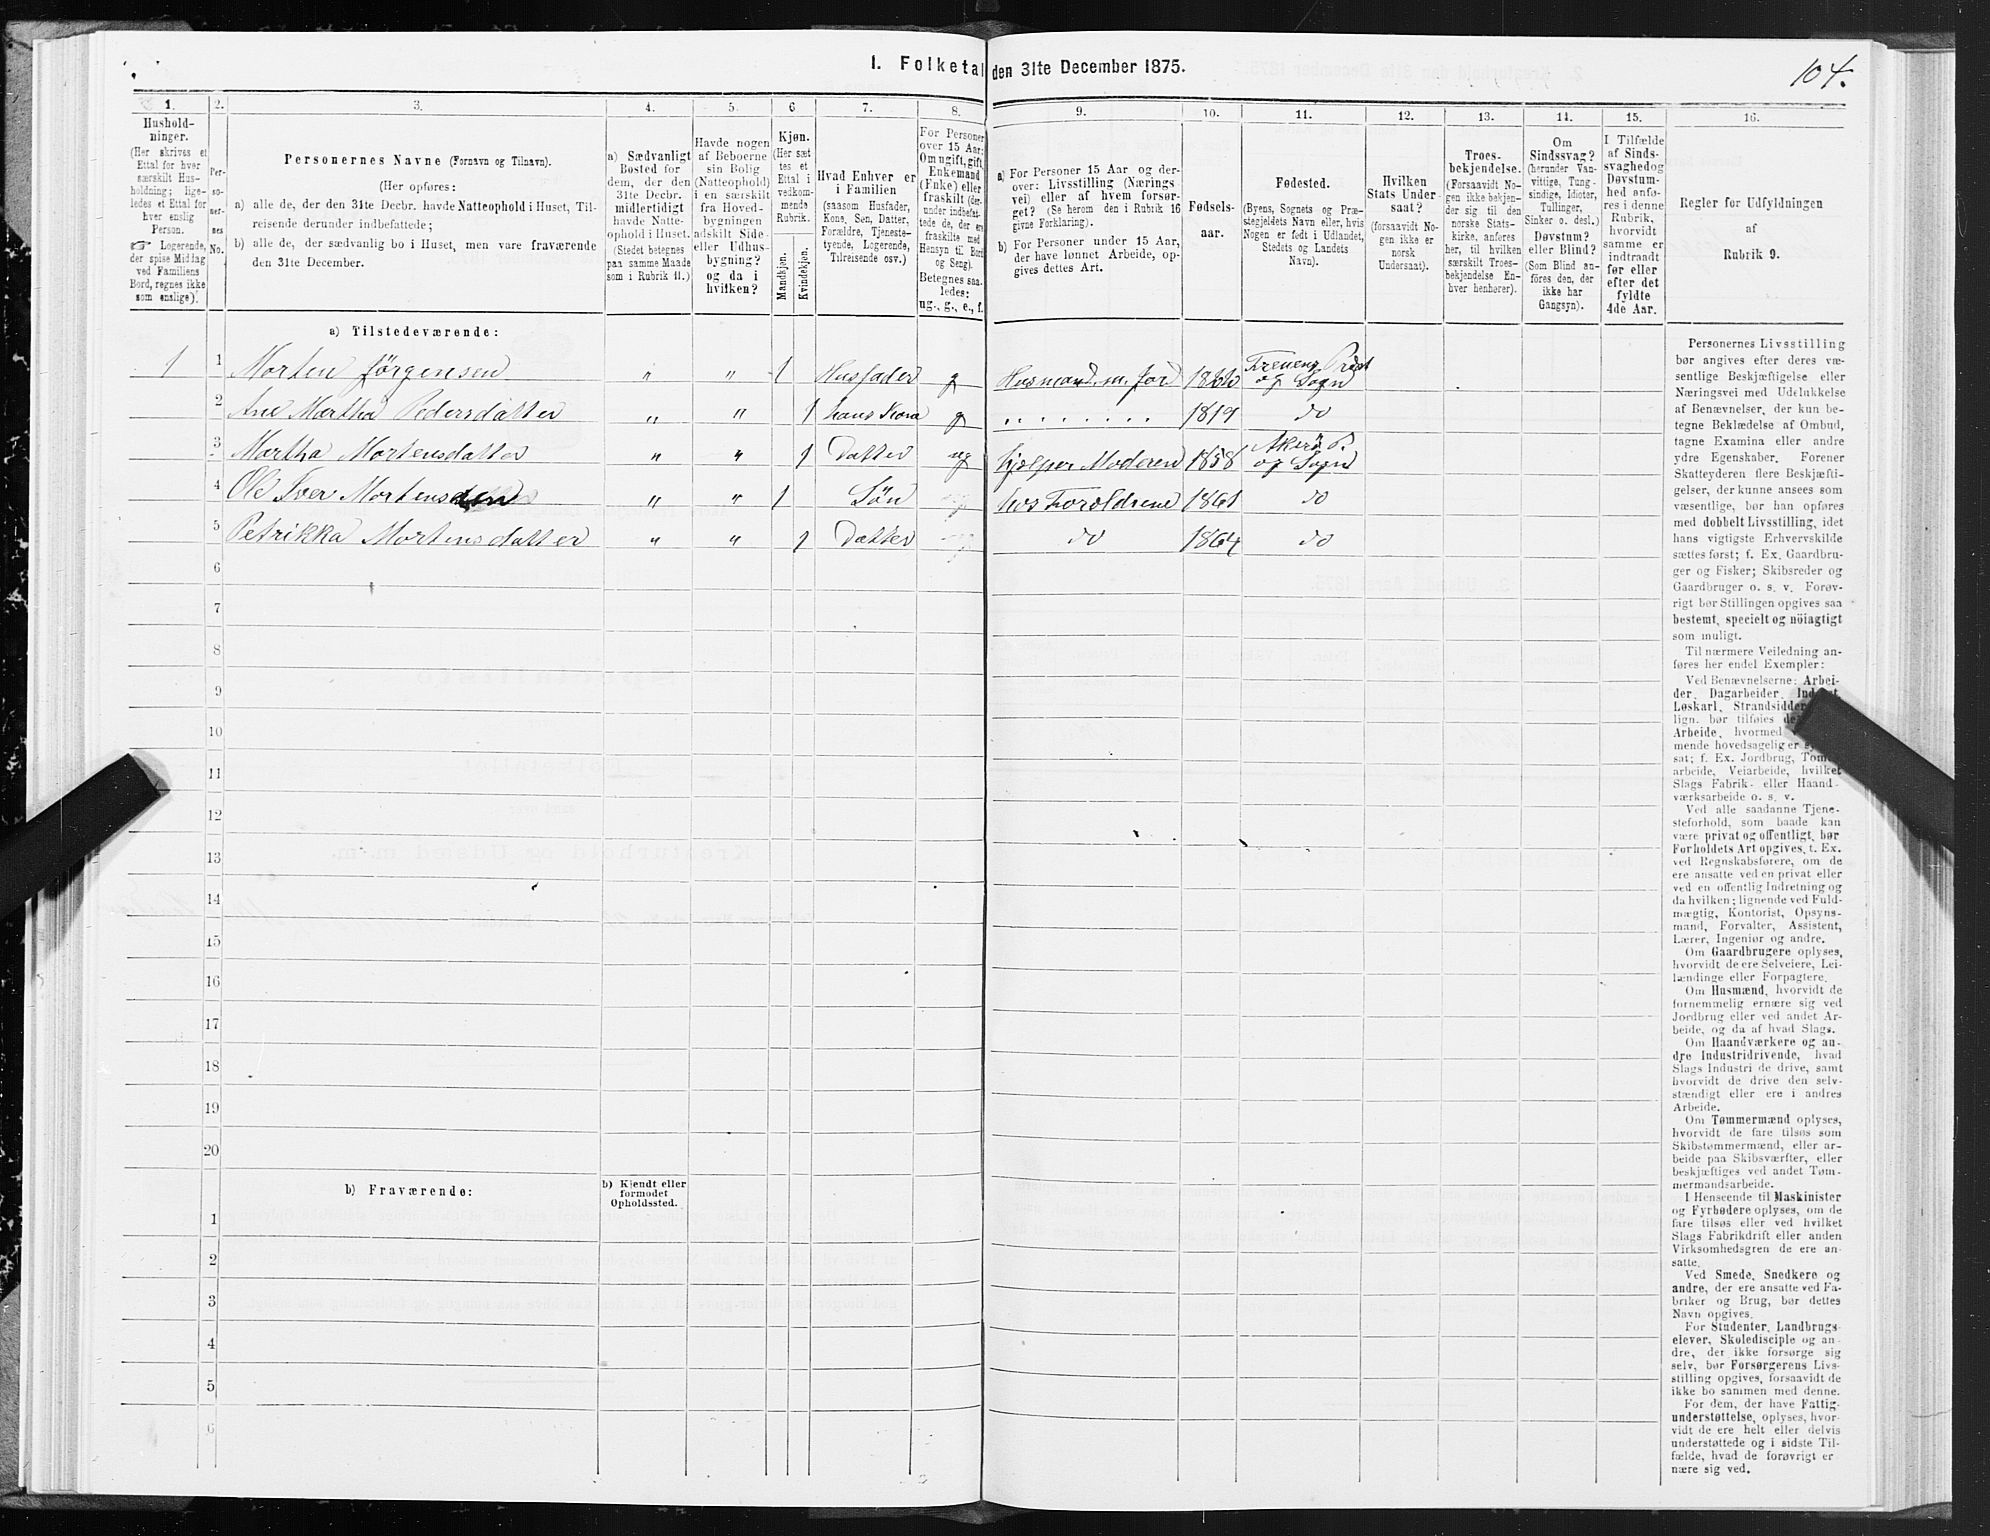 1. Folketal den 31te December 1875.
104.
1. 2. 3. 4. 5. 6 7. 8. 9. 10. 11. 12. 13. 14. 15. 16.
Hushold-
ninger.
(Her skrives et
Ettal for hver
særskilt Hus-
holdning; lige-
ledes et Ettal for
hver enslig
Person.
☞ Logerende,
der spise Middag
ved Familiens
Bord, regnes ikke
som enslige).
Per-
so-
ner-
nes
No.
Personernes Navne (Fornavn og Tilnavn).
(Her opføres:
a) alle de, der den 31te Decbr. havde Natteophold i Huset, Til-
reisende derunder indbefattede;
b) alle de, der sædvanlig bo i Huset, men vare fraværende
den 31te December.
a) Sædvanligt
Bosted for
dem, der den
31te Decbr.
midlertidigt
havde Natte-
ophold i Huset.
(Stedet betegnes
paa samme Maade
som i Rubrik 11.)
Havde nogen
af Beboerne
sin Bolig
(Natteophold)
i en særskilt
fra Hoved-
bygningen
adskilt Side-
eller Udhus-
bygning?
og da i
hvilken?
Kjøn.
(Her sæt
tes et
Ettal i
vedkom-
mende
Rubrik.
Mandkjøn.
Kvindekjøn.
Hvad Enhver er
i Familien
(saasom Husfader,
Kone, Søn, Datter,
Forældre, Tjeneste-
tyende, Logerende,
Tilreisende osv.)
For Personer
over 15 Aar:
Om ugift, gift,
Enkemand
(Enke) eller
fraskilt (der-
under indbefat-
tede de, der ere
fraskilte med
Hensyn til Bord
og Seng).
Betegnes saa-
ledes:
ug., g., e., f.
a) For Personer 15 Aar og der-
over: Livsstilling (Nærings-
vei) eller af hvem forsør-
get? (Se herom den i Rubrik 16
givne Forklaring).
b) For Personer under 15 Aar,
der have lønnet Arbeide, op-
gives dettes Art.
Fødsels-
aar.
Fødested.
(Byens, Sognets og Præ-
stegjeldets Navn eller, hvis
Nogen er født i Udlandet,
Stedets og Landets
Navn).
Hvilken
Stats Under-
saat?
(forsaavidt No-
gen ikke er
norsk
Undersaat).
Troes-
bekjendelse.
(Forsaavidt No-
gen ikke bekjen-
der sig til den
norske Stats-
kirke, anføres
her, til hvilken
særskilt Troes-
bekjendelse En-
hver henhører).
Om
Sindssvag?
(herunder Van-
vittige, Tung-
sindige, Idioter,
Tullinger,
Sinker o. desl.)
Døvstum?
eller Blind?
(Som Blind an-
føres den, der
ikke har
Gangsyn).
I Tilfælde
af Sinds-
svaghed og
Døvstum-
hed anfø-
res i denne
Rubrik,
hvorvidt
samme er
indtraadt
før eller
efter det
fyldte
4de Aar.
Regler for Udfyldningen
af
Rubrik 9.
a) Tilstedeværende:
1 1 Morten Jørgensen " " 1 Husfader g Husmand m. Jord og Sogn
2 Ane Martha Pedersdatter " " 1 hans Kona g " 1819 do
3 Martha Mortensdatter " " 1 Datter ug hjelper Moderen 1858 Akerø P. og Sogn
4 Ole Iver Mortensen " " 1 Søn hos Forældrene 1861 do
5 Petrikka Mortensdatter " " 1 Datter do 1864 do
6
7
8
9
10
11
12
13
14
15
16
17
18
19
20
b) Fraværende:
b) Kjendt eller
formodet
Opholdssted.
1
2
3
4
5
6
Personernes Livsstilling
bør angives efter deres væ-
sentlige Beskjæftigelse eller
Næringsvei med Udelukkelse
af Benævnelser, der kun be-
tegne Beklædelse af Ombud,
tagne Examina eller andre
ydre Egenskaber. Forener
Skatteyderen flere Beskjæfti-
gelser, der kunne ansees som
væsentlige, bør han opføres
med dobbelt Livsstilling, idet
hans vigtigste Erhvervskilde
sættes først; f. Ex. Gaardbru-
ger og Fisker; Skibsreder og
Gaardbruger o. s. v. Forøv-
rigt bør Stillingen opgives saa
bestemt, specielt og nöiagtigt
som muligt.
Til nærmere Veiledning an-
føres her endel Exempler:
Ved Benævnelserne: Arbei-
der, Dagarbeider,
Løskarl, Strandsidder
lign. bør tilføies
Arbeide, hvormed
mende hovedsagelig er
sat; f. Ex. Jordbrug,
arbeide, Veiarbeide, hvilket
Slags Fabrik- eller Haand-
værksarbeide o. s. v.
Ved alle saadanne Tjene-
steforhold, som baade kan
være privat og offentligt, bør
Forholdets Art opgives, f. Ex.
ved Regnskabsførere, om de
ere ansatte ved en privat eller
ved en offentlig Indretning og
da hvilken; lignende ved Fuld-
mægtig, Kontorist, Opsyns-
mand, Forvalter, Assistent,
Lærer, Ingeniør og andre.
Om Gaardbrugere oplyses,
hvorvidt de ere Selveiere, Lei-
lændinge eller Forpagtere.
Om Husmænd, hvorvidt de
fornemmelig ernære sig ved
Jordbrug eller ved andet Ar-
beide, og da af hvad Slags.
Om Haandværkere og an-
dre Industridrivende, hvad
Slags Industri de drive, samt
hvorvidt de drive den selv-
stændigt eller ere i andres
Arbeide.
Om Tømmermænd oplyses,
hvorvidt de fare tilsøs som
Skibstømmermænd, eller ar-
beide paa Skibsværfter, eller
beskjæftiges ved andet Tøm-
mermandsarbeide.
I Henseende til Maskinister
og Fyrbødere oplyses, om de
fare tilsøs eller ved hvilket
Slags Fabrikdrift eller anden
Virksomhedsgren de ere an-
satte.
Ved Smede, Snedkere og
andre, der ere ansatte ved Fa-
briker og Brug, bør dettes
Navn opgives.
For Studenter, Landbrugs-
elever, Skoledisciple og an-
dre, der ikke forsørge sig
selv, bør Forsørgerens Livs-
stilling opgives, forsaavidt de
ikke bo sammen med denne.
For dem, der have Fattig-
understøttelse, oplyses, hvor-
vidt de ere helt eller delvis
understøttede og i sidste Til-
fælde, hvad de forøvrigt er-
nære sig ved.